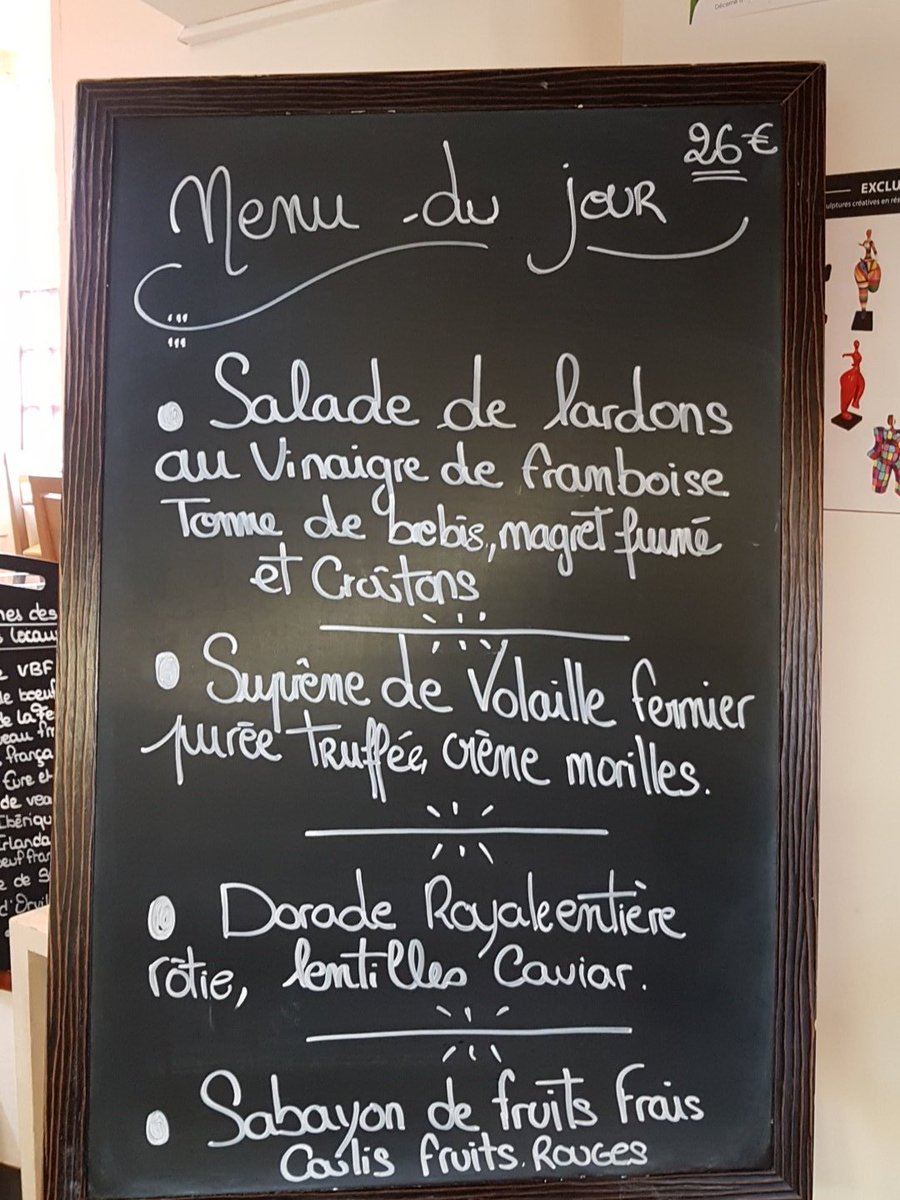 Décerné
26€
Menu du jour
EXCLU
sculptures créatives en rés
• Salade de lardons
au Vinaigre de framboise
Tomme de brebis, magret fumé
et Croûtons
• Suprême de Volaille fermier
purée Truffée, crème morilles.
• Dorade Royale entière
rôtie, lentilles Caviar.
• Sabayon de fruits Frais
Coulis fruits Rouges
nes des
locaux
VBF
de boeuf
de la Fe
frança
Eure et
de vea
Ibériqu
Irlanda
oeuf fran
de